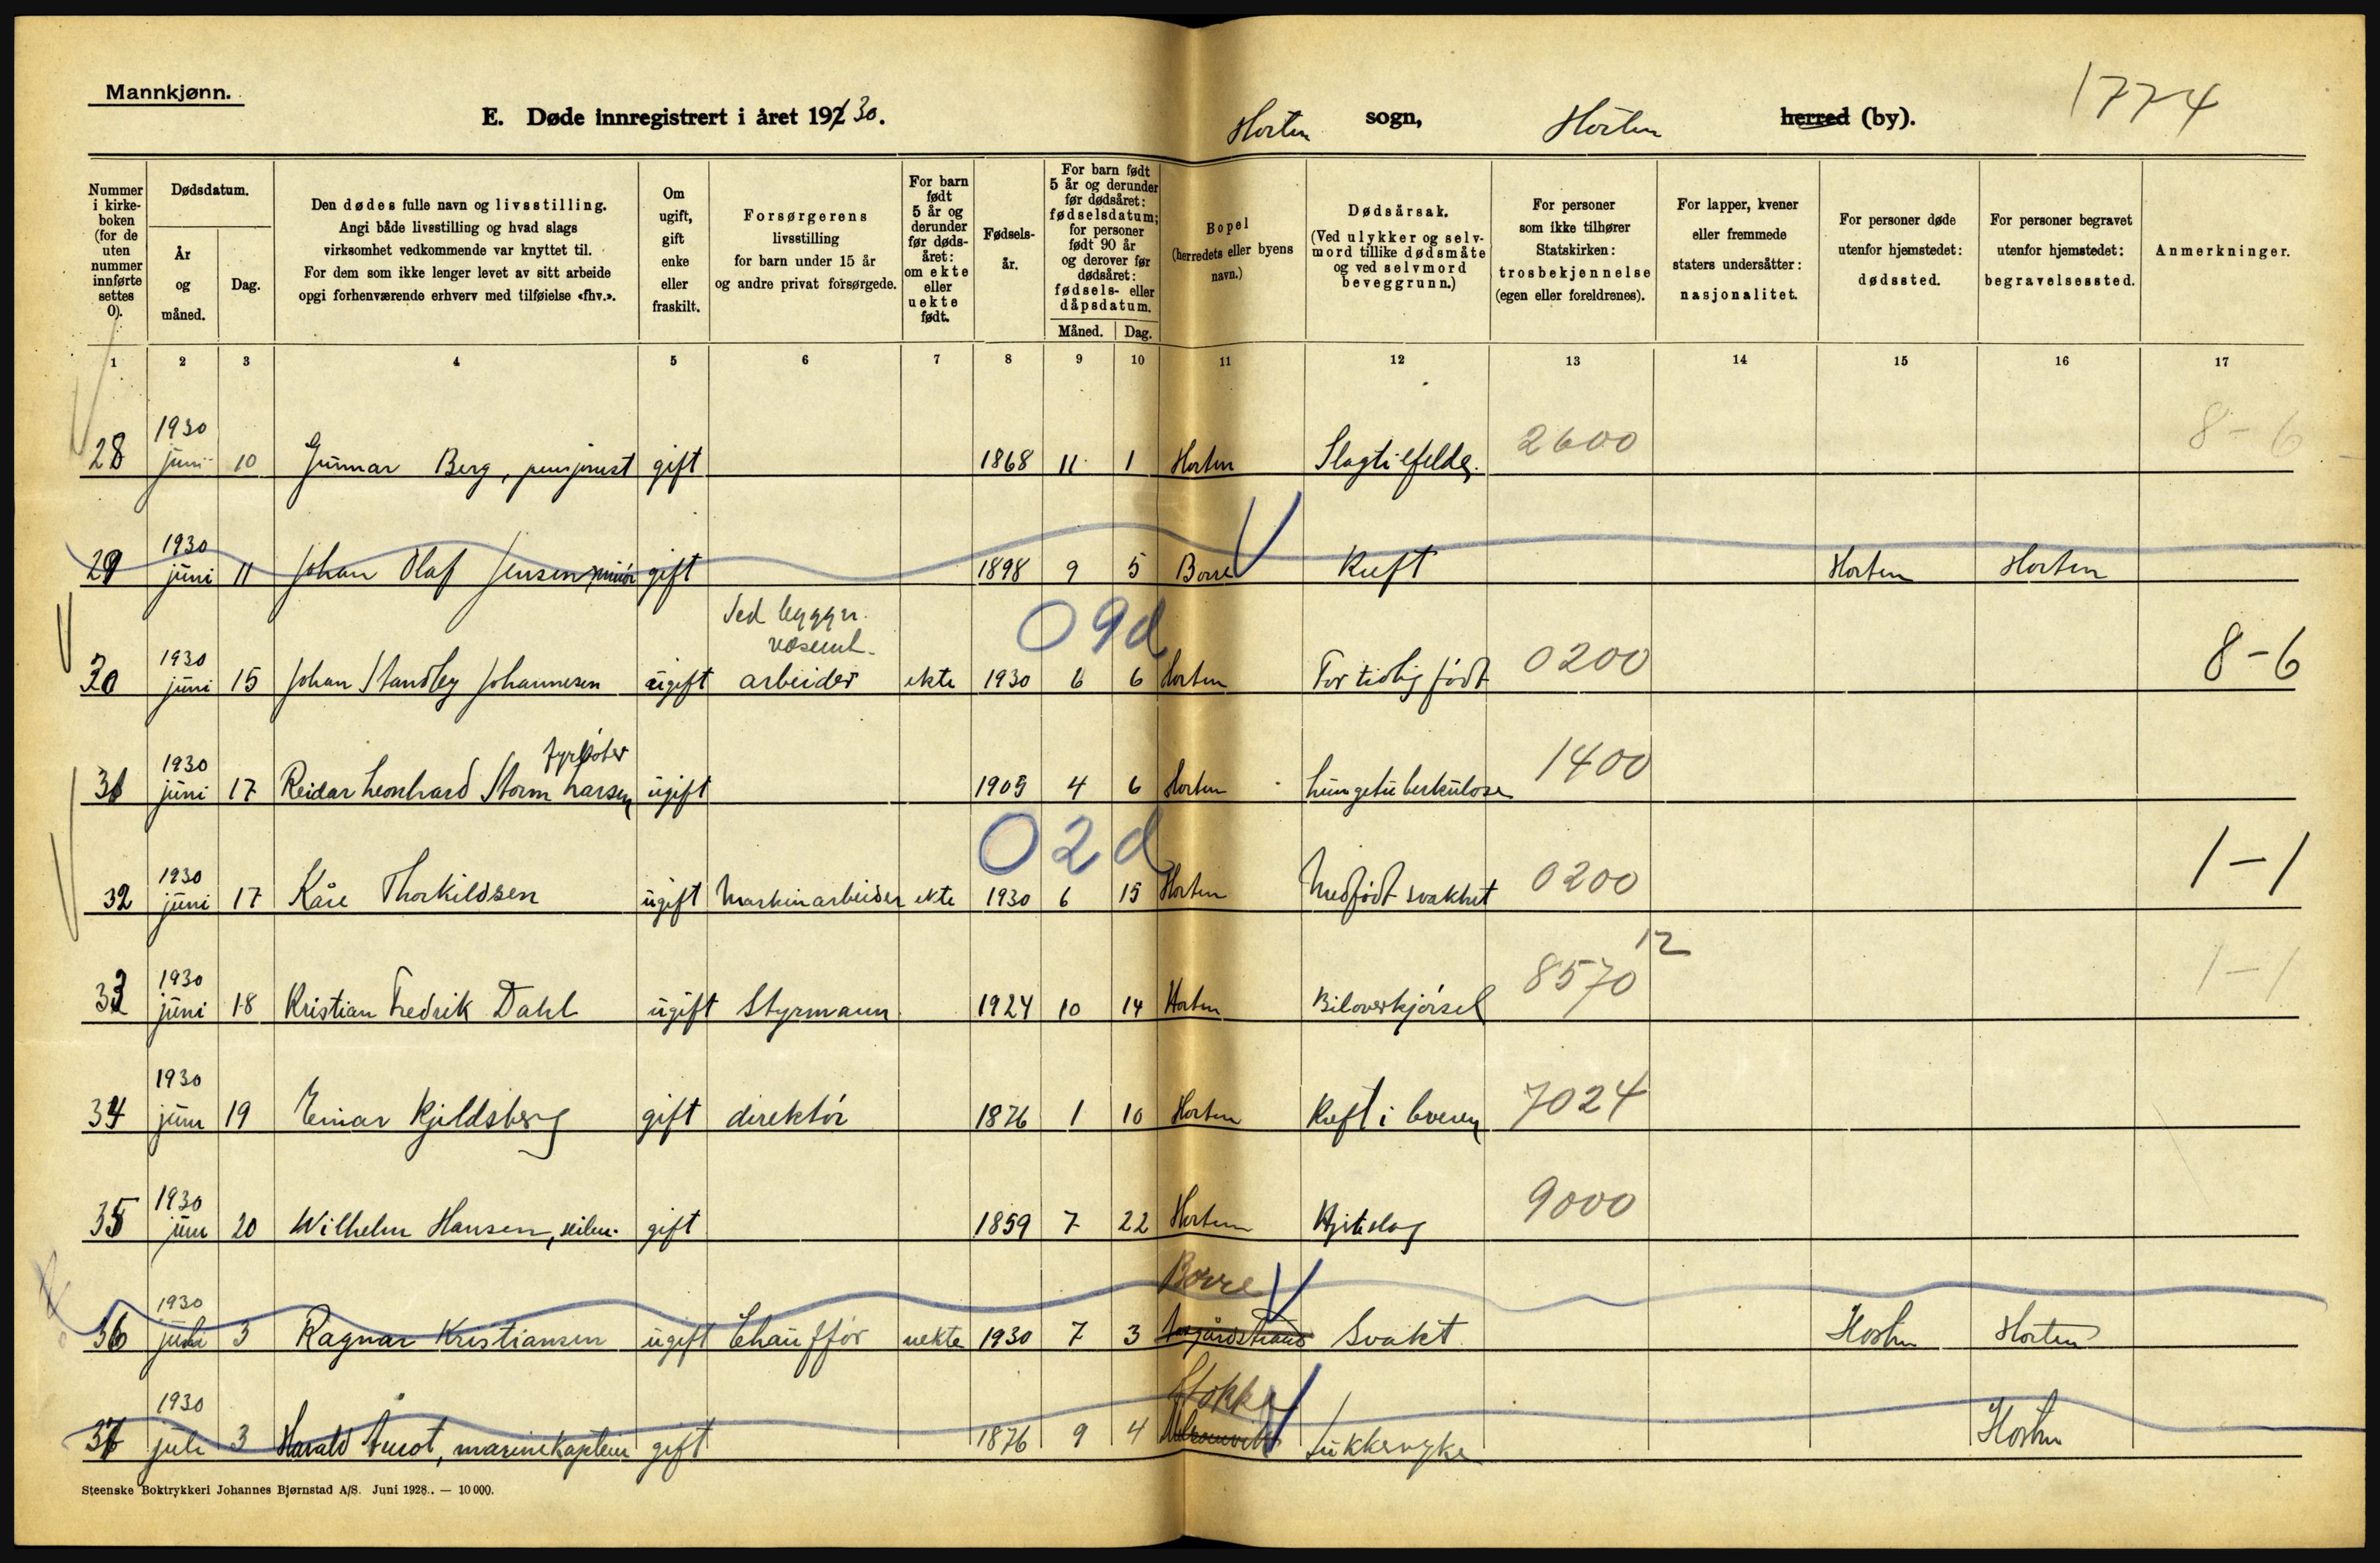 Mannkjønn.
E. Døde innregistrert i året 1930.
Horten sogn, Horten herred (by).
1774
Nummer i kirke-boken (for de uten nummer innførte settes 0).
Dødsdatum.
År og måned.
Dag.
Den dødes fulle navn og livsstilling.
Angi både livsstilling og hvad slags
virksomhet vedkommende var knyttet til.
For dem som ikke lenger levet av sitt arbeide
opgi forhenværende erhverv med tilføielse «fhv.».
Om ugift, gift enke eller fraskilt.
Forsørgerens
livsstilling
for barn under 15 år
og andre privat forsørgede.
For barn født 5 år og derunder før døds-året: om ekte eller uekte født.
Fødsels-år.
For barn født 5 år og derunder før dødsåret: fødselsdatum; for personer født 90 år og derover før dødsåret: fødsels- eller dåpsdatum.
Måned.
Dag.
Bopel
(herredets eller byens navn.)
Dødsårsak.
(Ved ulykker og selv-mord tillike dødsmåte og ved selvmord beveggrunn.)
For personer som ikke tilhører Statskirken: trosbekjennelse (egen eller foreldrenes).
For lapper, kvener eller fremmede staters undersåtter: nasjonalitet.
For personer døde utenfor hjemstedet: dødssted.
For personer begravet utenfor hjemstedet: begravelsessted.
Anmerkninger.
1 2 3 4 5 6 7 8 9 10 11 12 13 14 15 16 17
28 1930 juni 10 Gunnar Berg, pensjonist gift 1868 11 1 Horten Slagtilfelde. 2600 8-6
29 1930 juni 11 Johan Olaf Jensen, gift 1898 9 5 Borre Kreft Horten Horten
09d
30 1930 juni 15 Johan Standley Johannesen ugift Ved byggn. vesenet. arbeider ekte 1930 6 6 Horten For tidlig født 0200 8-6
31 1930 juni 17 Reidar Leonhard Storm Larsen fyrbøter ugift 1909 4 6 Horten Lungetuberkulose 1400
02d
32 1930 juni 17 Kåre Thorkildsen ugift Maskinarbeider ekte 1930 6 15 Horten Medfødt svakhet 0200 1-1
33 1930 juni 18 Kristian Fredrik Dahl ugift Styrmann 1924 10 14 Horten Biloverkjørsel 8570 12 1-1
34 1930 juni 19 Einar Kjeldsberg gift direktør 1876 1 10 Horten Kreft i 7024
35 1930 juni 20 Wilhelm Hansen, gift 1859 7 22 Horten Hjerteslag 9000
36 1930 juli 3 Ragnar Kristiansen ugift Chauffør uekte 1930 7 3 Borre Åsgårdstrand Svakt Horten Horten
37 1930 juli 3 Harald marinekaptein gift 1876 9 4 Stokke Sukkersyke Horten
Steenske Boktrykkeri Johannes Bjørnstad A/S. Juni 1928. — 10 000.